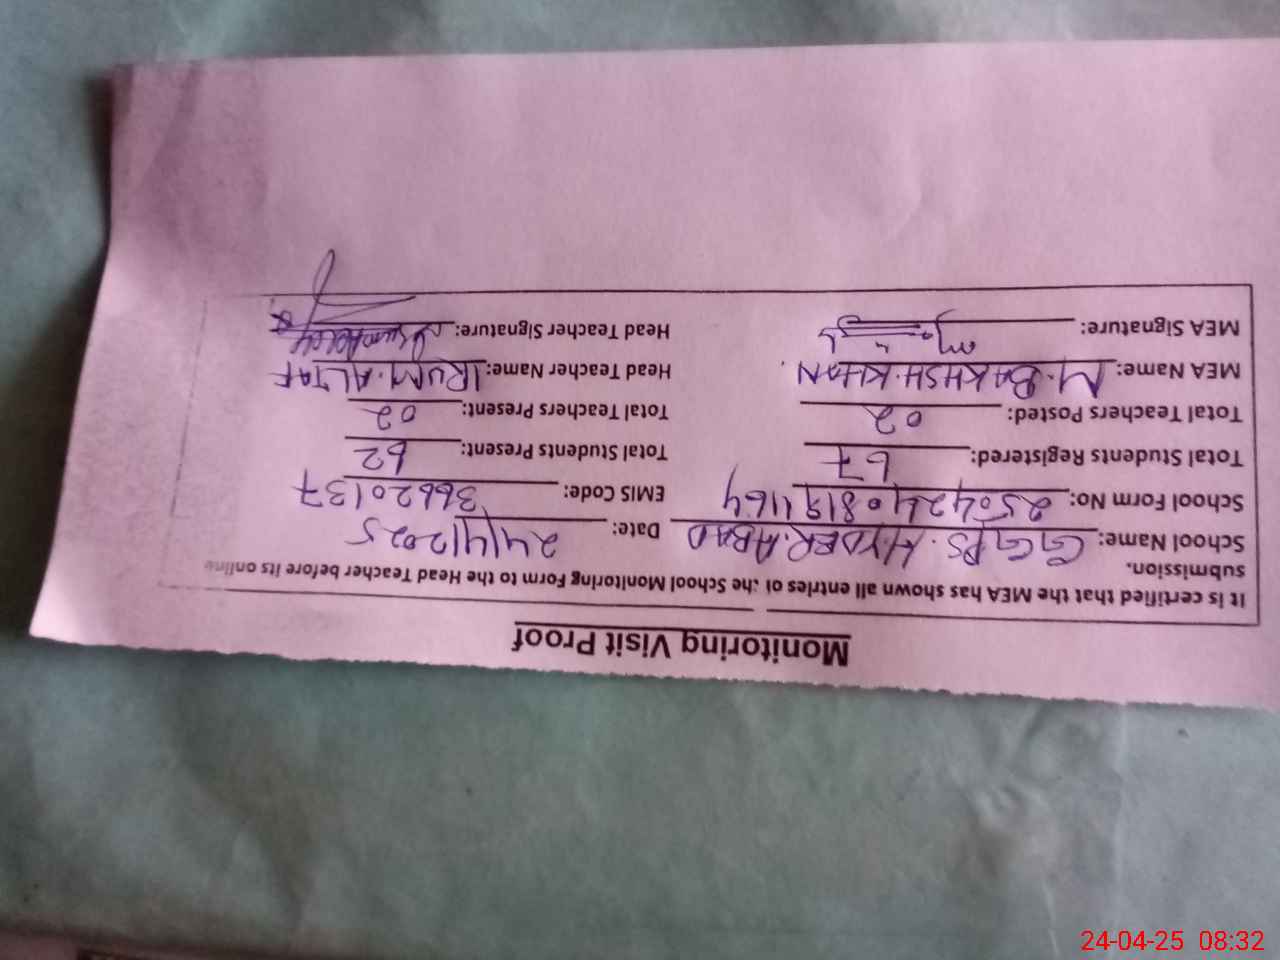 Monitoring Visit Proof
It is certified that the MEA has shown all entries of the School Monitoring Form to the Head Teacher before its online
submission.
School Name: GGPS. HYDER.ABAD Date: 24/4/2025
School Form No: EMIS Code: 36620137
Total Students Registered: 67 Total Students Present: 62
Total Teachers Posted: 02 Total Teachers Present: 02
MEA Name: M.BAKHSH.KHAN. Head Teacher Name: IRUM.ALTAF
MEA Signature: Head Teacher Signature:
24-04-25 08:32